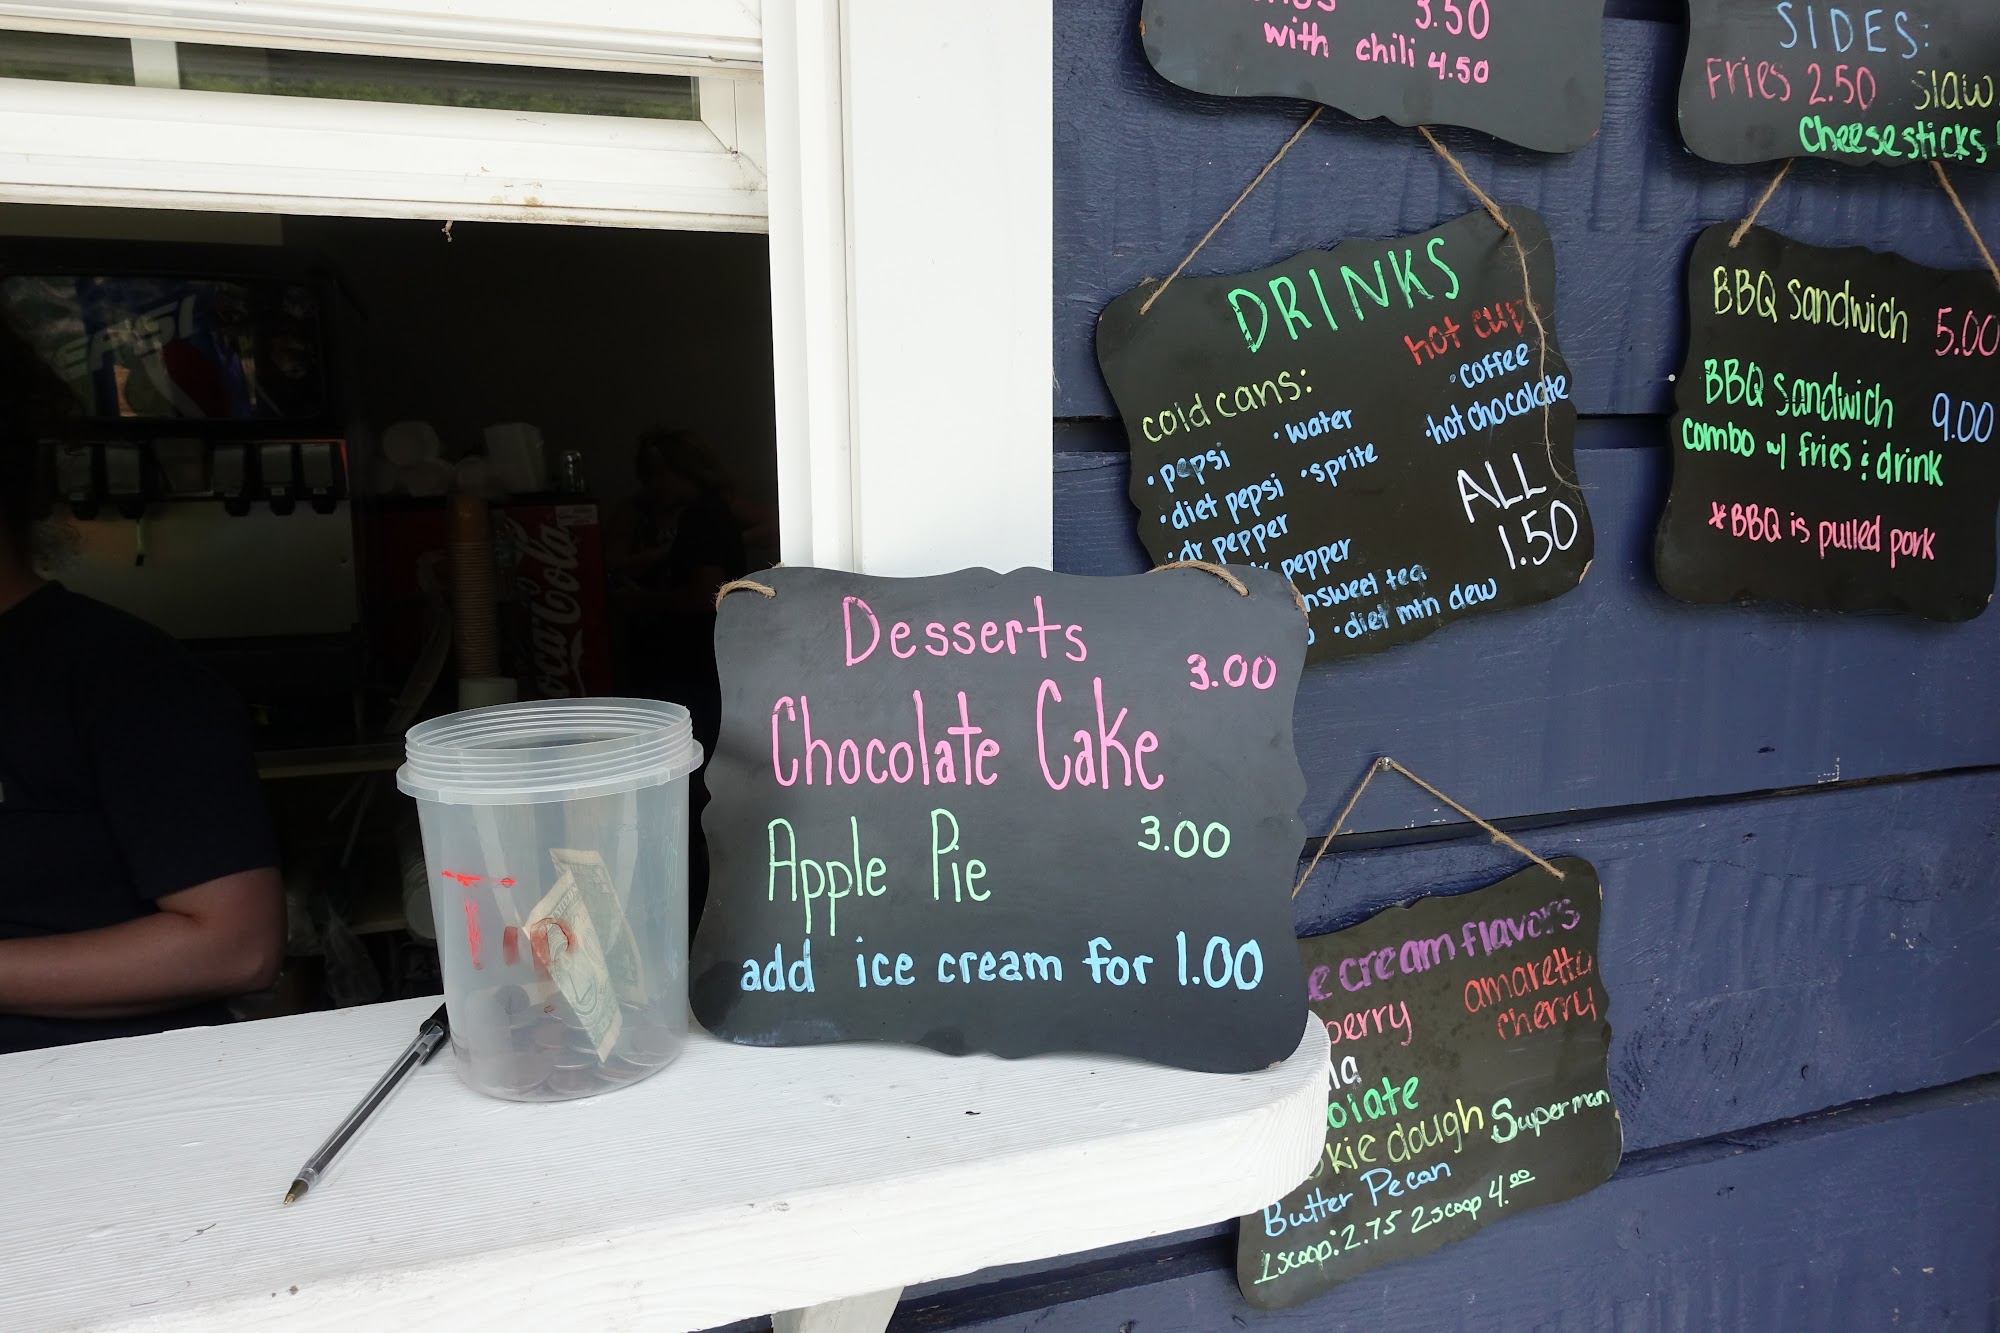 3.50
with chili 4.50
SIDES:
Fries 2.50 Slaw
Cheesesticks
DRINKS
hot cup
cold cans:
• coffee
• hot chocolate
• pepsi • water
• diet pepsi • sprite
• dr pepper
pepper
nsweet tea
• diet mtn dew
ALL
1.50
BBQ Sandwich 5.00
BBQ Sandwich 9.00
combo w/ fries & drink
*BBQ is pulled pork
PEPSI
Coca-Cola
Tip
Desserts
3.00
Chocolate Cake
Apple Pie 3.00
add ice cream for 1.00
e cream flavors
berry amaretto
cherry
la
olate
kie dough Superman
Butter Pecan
1 scoop: 2.75 2 scoop 4.00